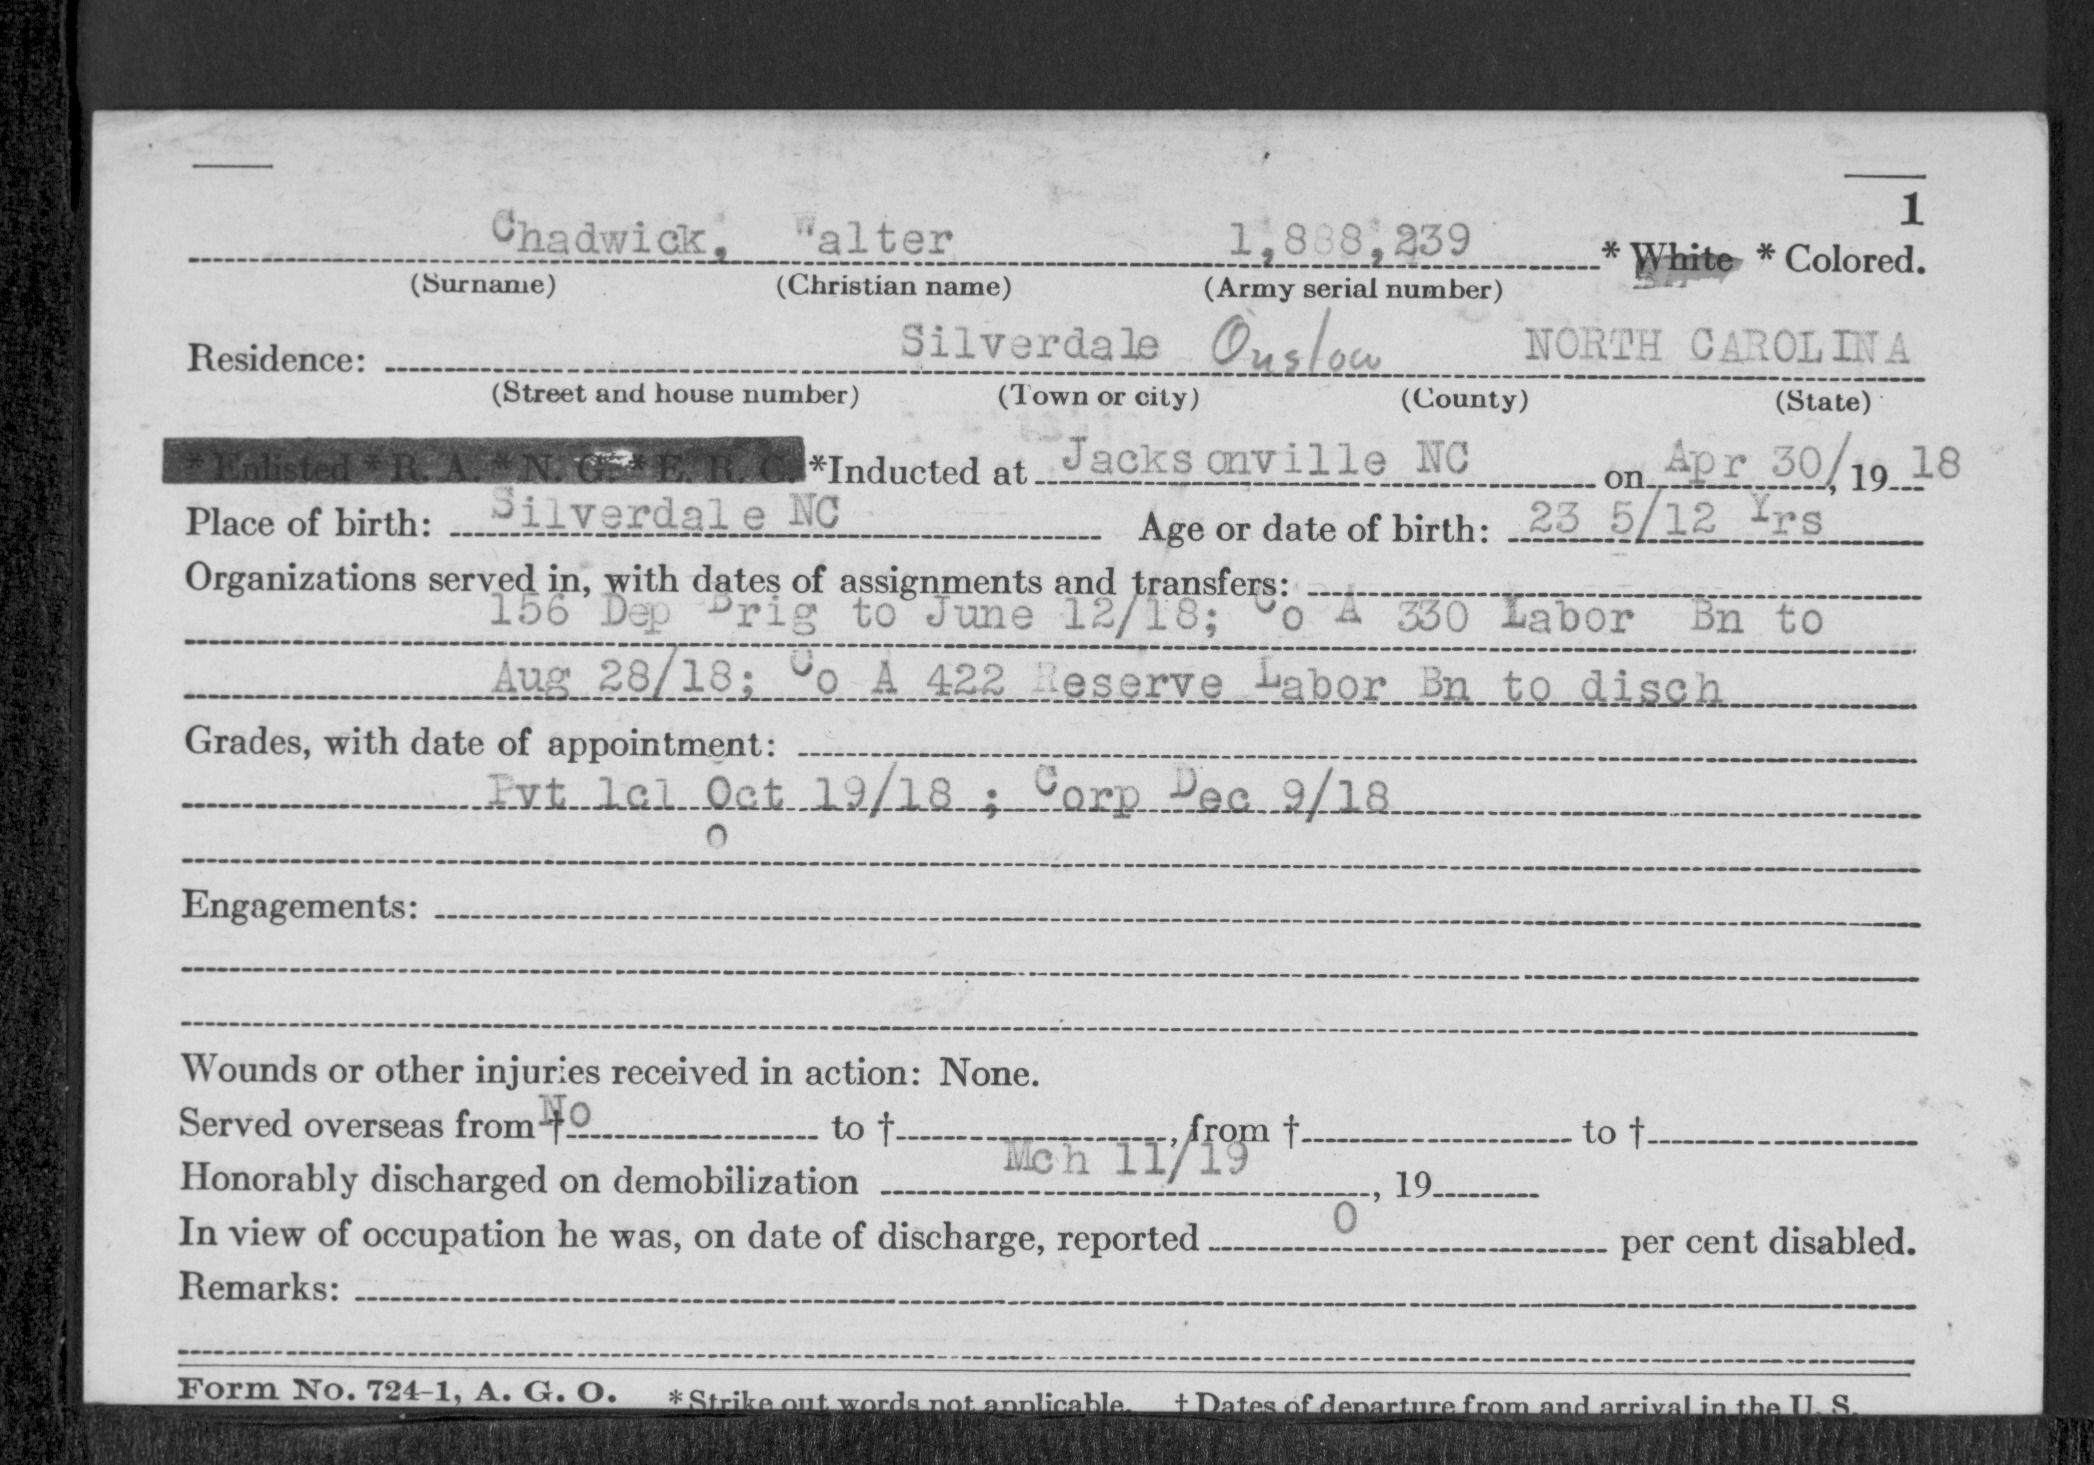 1
Chadwick, Walter 1,888,239 * White * Colored.
(Surname) (Christian name) (Army serial number)
Residence: Silverdale Onslow NORTH CAROLINA
(Street and house number) (Town or city) (County) (State)
* Enlisted * R. A. * N. G. * E. R. C. *Inducted at Jacksonville NC on Apr 30/, 19 18
Place of birth: Silverdale NC Age or date of birth: 23 5/12 Yrs
Organizations served in, with dates of assignments and transfers:
156 Dep Brig to June 12/18; Co A 330 Labor Bn to
Aug 28/18; Co A 422 Reserve Labor Bn to disch
Grades, with date of appointment:
Pvt 1cl Oct 19/18 ; Corp Dec 9/18
o
Engagements:
Wounds or other injuries received in action: None.
Served overseas from † No to †, from † to †
Honorably discharged on demobilization Mch 11/19, 19
In view of occupation he was, on date of discharge, reported 0 per cent disabled.
Remarks:
Form No. 724-1, A. G. O. *Strike out words not applicable. † Dates of departure from and arrival in the U. S.